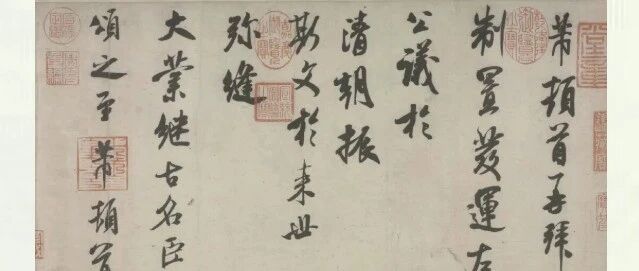 芾頓首再拜
制置發運左
公議於
清朝振
斯文於来世
弥縫
大業継古名臣
頌之至芾頓首